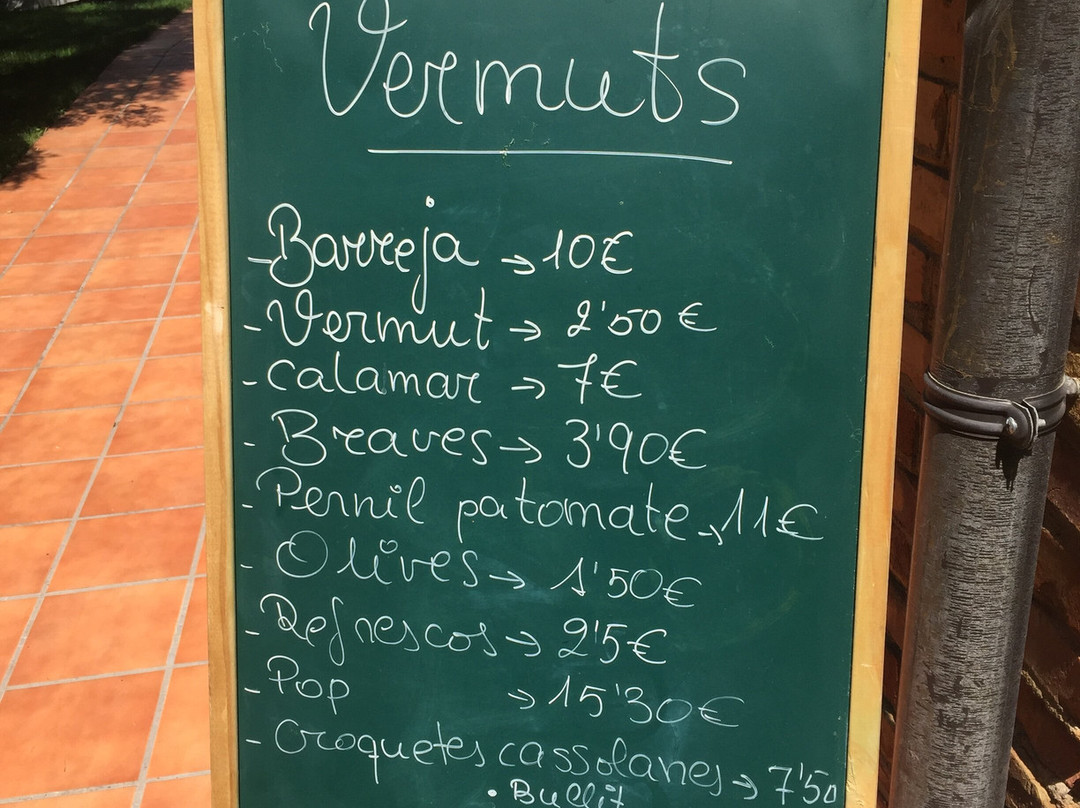 Vermuts
- Barreja → 10€
- Vermut → 2'50€
- Calamar → 7€
- Braves → 3'90€
- Pernil patomate → 11€
- Olives → 1'50€
- Refrescos → 2'5€
- Pop → 15'30€
- Croquetes cassolanes → 7'50
• Bullit